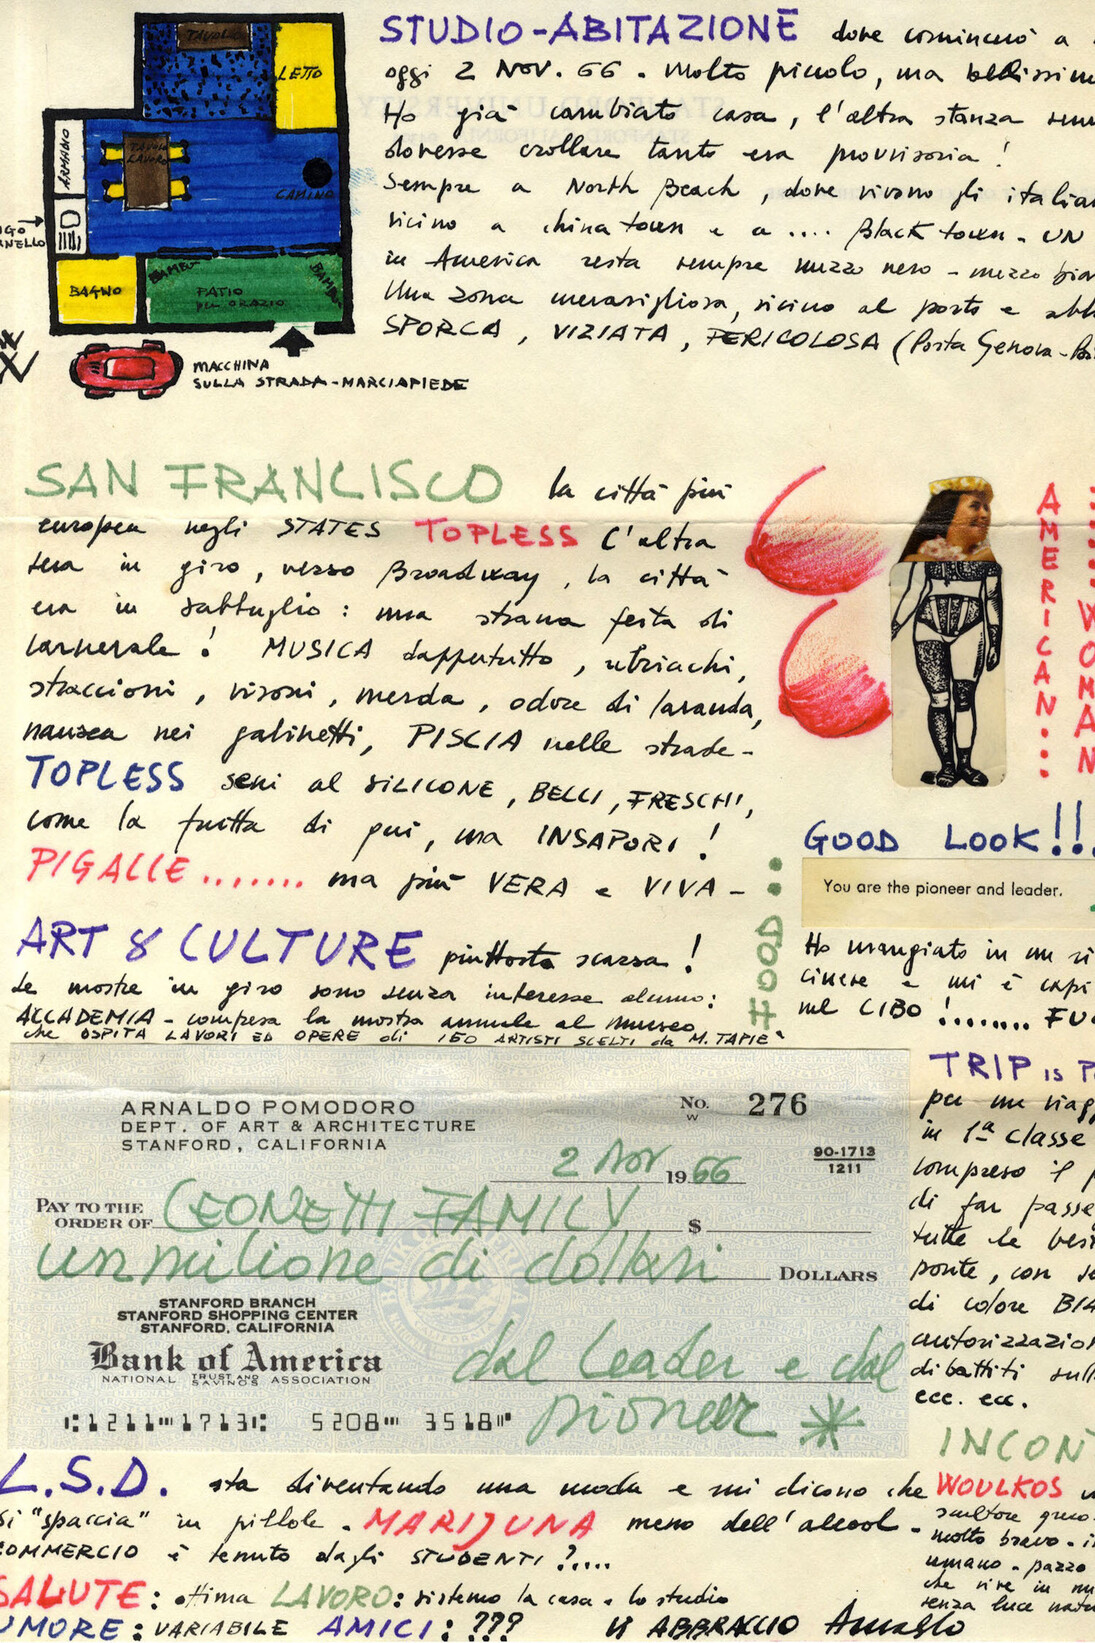 TAVOLO
LETTO
ARMADIO
TAVOLO
LAVORO
CAMINO
BAGNO
BAMBU
PATIO
PER ORAZIO
BAMBU
MACCHINA
SULLA STRADA-MARCIAPIEDE
STUDIO-ABITAZIONE dove comincerò a
oggi 2 NOV. 66. Molto piccolo, ma
Ho già cambiato casa, l'altra stanza
dovesse crollare tanto era provvisoria!
Sempre a North Beach, dove vivono gli
vicino a china town e a .... Black town - UN
in America resta sempre mezzo nero - mezzo
Una zona meravigliosa, vicino al porto e
SPORCA, VIZIATA, PERICOLOSA (Porta Genova-
SAN FRANCISCO la città più
europea negli STATES TOPLESS L'altra
sera in giro, verso Broadway, la città
era in subbuglio: una strana festa di
carnevale! MUSICA dappertutto, ubriachi,
straccioni, visoni, merda, odore di lavanda,
nausea nei gabinetti, PISCIA nelle strade-
TOPLESS seni al SILICONE, BELLI, FRESCHI,
come la frutta di qui, ma INSAPORI!
PIGALLE....... ma più VERA e VIVA-
AMERICAN...
...WOMAN
GOOD LOOK!!!
You are the pioneer and leader.
ART & CULTURE piuttosto scarsa!
Le mostre in giro sono senza interesse alcuno:
ACCADEMIA - compresa la mostra annuale al museo
che OSPITA LAVORI ED OPERE di 150 ARTISTI SCELTI da M. TAPIE'
Ho mangiato in un
cinese e mi è
nel CIBO!........
ARNALDO POMODORO
DEPT. OF ART & ARCHITECTURE
STANFORD, CALIFORNIA
No. 276
W
90-1713
1211
2 Nov 1966
PAY TO THE
ORDER OF LEONETTI FAMILY $
un milione di dollari DOLLARS
STANFORD BRANCH
STANFORD SHOPPING CENTER
STANFORD, CALIFORNIA
Bank of America
NATIONAL TRUST AND SAVINGS ASSOCIATION
dal leader e dal
pioneer *
1211 1713 5208 3518
TRIP is
per un
in 1ª classe
compreso il
di far
tutte le
ponte, con
di colore
dibattiti
ecc. ecc.
L.S.D. sta diventando una moda e mi dicono che
si "spaccia" in pillole. MARIJUNA meno dell'alcool.
COMMERCIO è tenuto dagli STUDENTI?....
SALUTE: ottima LAVORO: sistemo la casa e lo studio
UMORE: VARIABILE AMICI: ???
VI ABBRACCIO Arnaldo
WOULKOS
scultore greco
molto bravo -
umano - pazzo
che vive in
senza luce